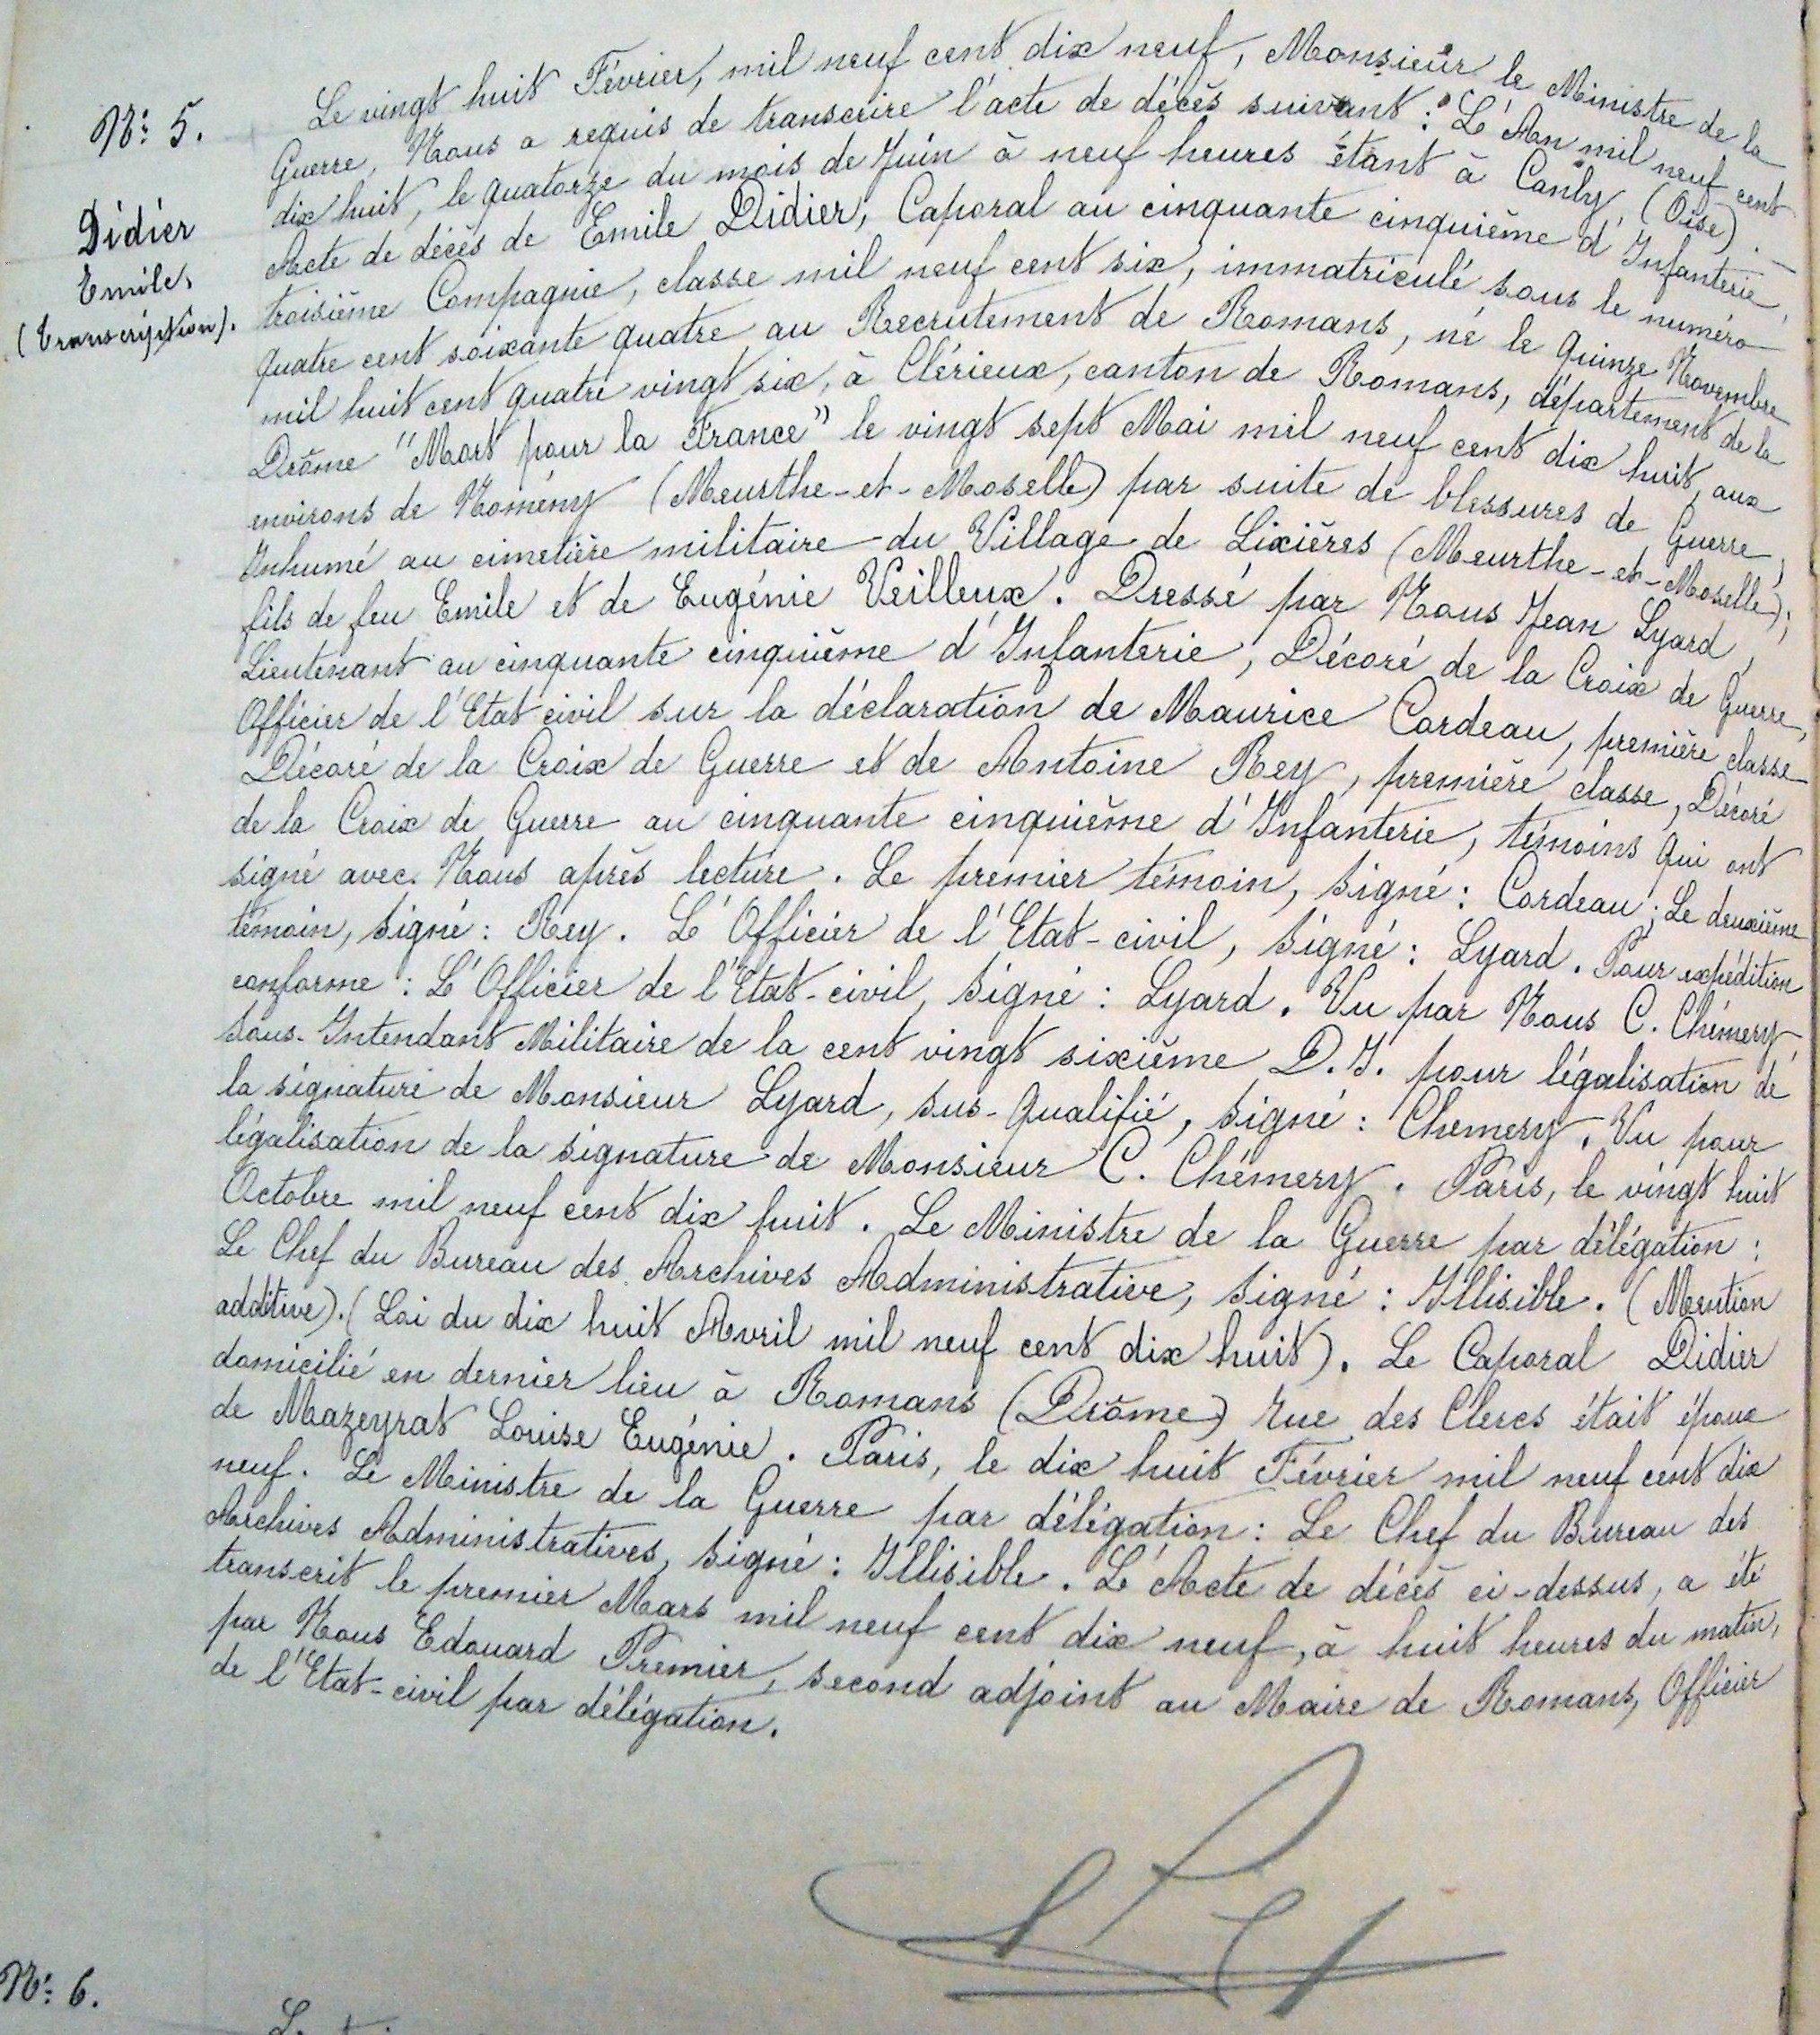 N°: 5.
Didier
Emile.
(transcription).
Le vingt huit Février, mil neuf cent dix neuf, Monsieur le Ministre de la
Guerre, Nous a requis de transcrire l'acte de décès suivant : L'An mil neuf cent
dix huit, le quatorze du mois de Juin à neuf heures étant à Canly, (Oise). —
Acte de décès de Emile Didier, Caporal au cinquante cinquième d'Infanterie,
troisième Compagnie, classe mil neuf cent six, immatriculé sous le numéro
quatre cent soixante quatre au Recrutement de Romans, né le quinze Novembre
mil huit cent quatre vingt six, à Clérieux, canton de Romans, département de la
Drôme "Mort pour la France" le vingt sept Mai mil neuf cent dix huit, aux
environs de Nomény (Meurthe-et-Moselle) par suite de blessures de Guerre,
Inhumé au cimetière militaire du Village de Lixières (Meurthe-et-Moselle);
fils de feu Emile et de Eugénie Veilleux. Dressé par Nous Jean Lyard,
Lieutenant au cinquante cinquième d'Infanterie, Décoré de la Croix de Guerre,
Officier de l'Etat civil sur la déclaration de Maurice Cordeau, première classe
Décoré de la Croix de Guerre et de Antoine Rey, première classe, Décoré
de la Croix de Guerre au cinquante cinquième d'Infanterie, témoins qui ont
signé avec Nous après lecture. Le premier témoin, signé : Cordeau ; Le deuxième
témoin, signé : Rey. L'Officier de l'Etat-civil, signé : Lyard. Pour expédition
conforme : L'Officier de l'Etat-civil, signé : Lyard. Vu par Nous C. Chémery,
Sous-Intendant Militaire de la cent vingt sixième D.I. pour légalisation de
la signature de Monsieur Lyard, sus-qualifié, signé : Chemery. Vu pour
légalisation de la signature de Monsieur C. Chémery. Paris, le vingt huit
Octobre mil neuf cent dix huit. Le Ministre de la Guerre par délégation :
Le Chef du Bureau des Archives Administrative, signé : Illisible. (Mention
additive). (Loi du dix huit Avril mil neuf cent dix huit). Le Caporal Didier
domicilié en dernier lieu à Romans (Drôme) rue des Clercs était époux
de Mazeyrat Louise Eugénie. Paris, le dix huit Février mil neuf cent dix
neuf. Le Ministre de la Guerre par délégation : Le Chef du Bureau des
Archives Administratives, signé : Illisible. L'Acte de décès ci-dessus, a été
transcrit le premier Mars mil neuf cent dix neuf, à huit heures du matin,
par Nous Edouard Premier, second adjoint au Maire de Romans, Officier
de l'Etat-civil par délégation.
N°: 6.